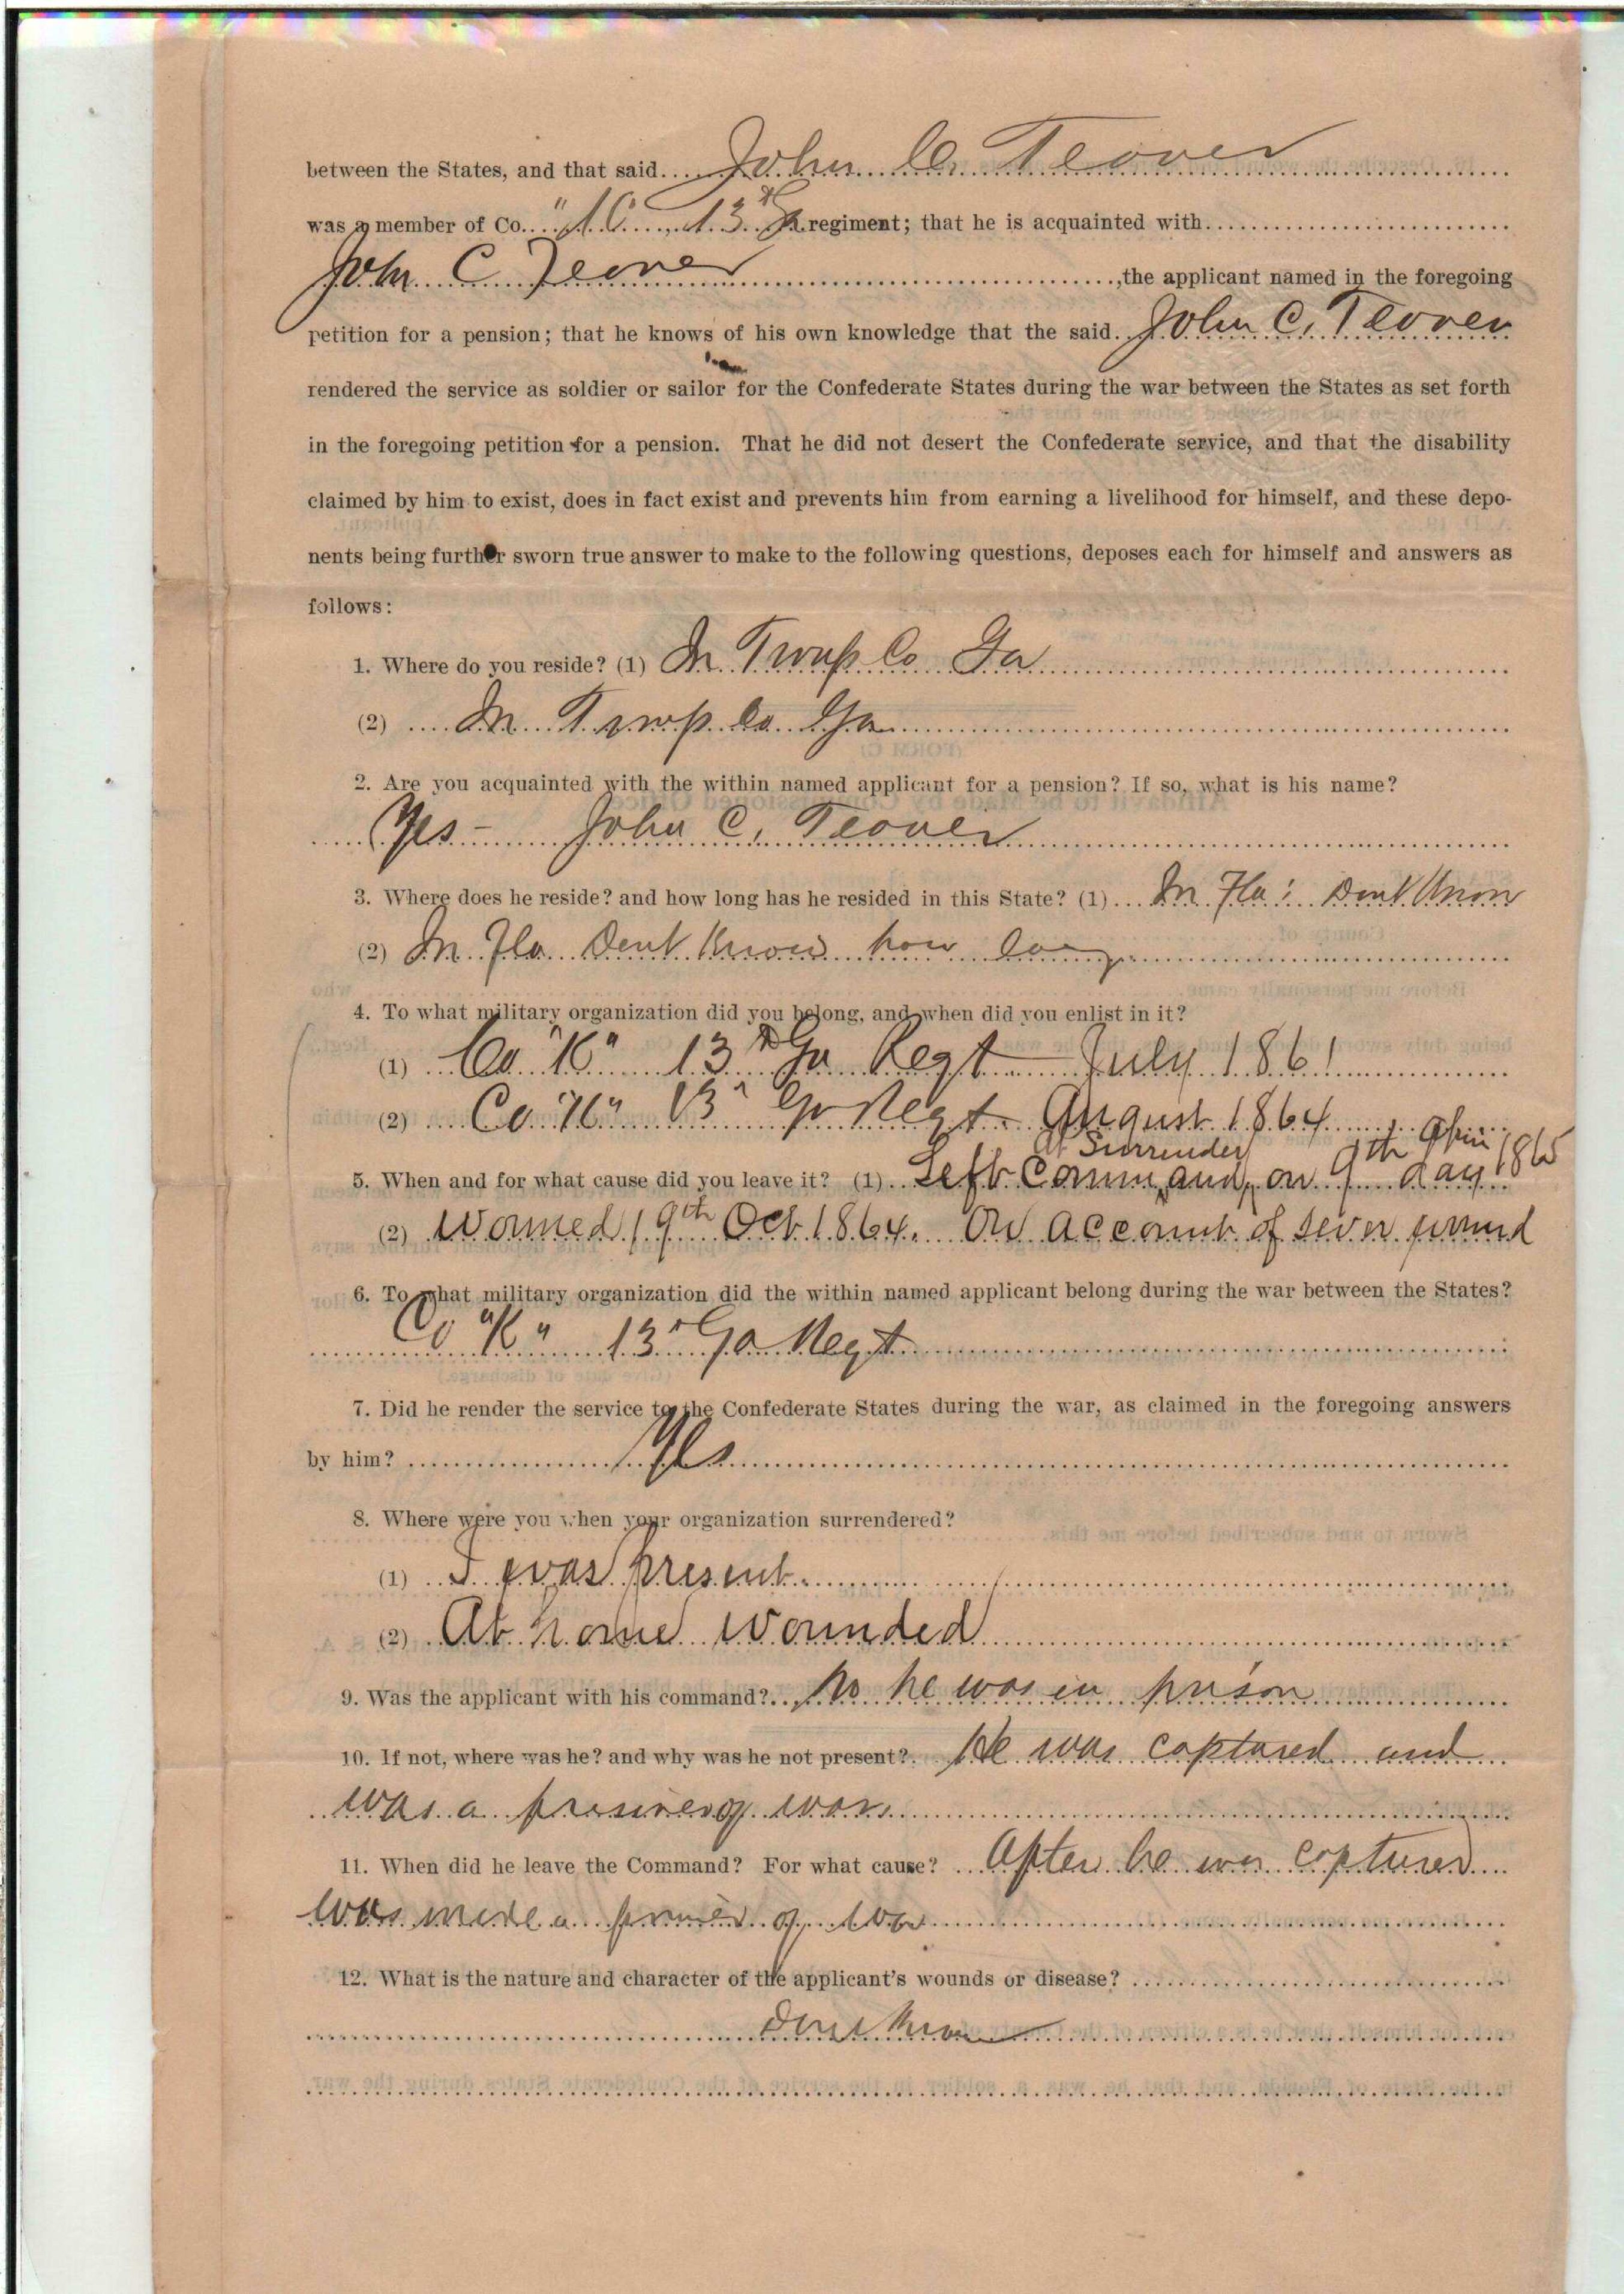 between the States, and that said John C. Teover
was a member of Co. "K", 13th Ga regiment; that he is acquainted with
John C Teover, the applicant named in the foregoing
petition for a pension; that he knows of his own knowledge that the said John C. Teover
rendered the service as soldier or sailor for the Confederate States during the war between the States as set forth
in the foregoing petition for a pension. That he did not desert the Confederate service, and that the disability
claimed by him to exist, does in fact exist and prevents him from earning a livelihood for himself, and these depo-
nents being further sworn true answer to make to the following questions, deposes each for himself and answers as
follows:
1. Where do you reside? (1) In Troup Co Ga
(2) In Troup Co Ga
2. Are you acquainted with the within named applicant for a pension? If so, what is his name?
Yes - John C. Teover
3. Where does he reside? and how long has he resided in this State? (1) In Fla: Dont Know
(2) In Fla Dont Know how long
4. To what military organization did you belong, and when did you enlist in it?
(1) Co "K" 13th Ga Regt July 1861
(2) Co "K" 13th Ga Regt August 1864
5. When and for what cause did you leave it? (1) Left Command, at Surrender on 9th day April 1865
(2) Wouned 19th Oct 1864. On account of sever wound
6. To what military organization did the within named applicant belong during the war between the States?
Co "K" 13th Ga Regt
7. Did he render the service to the Confederate States during the war, as claimed in the foregoing answers
by him? Yes
8. Where were you when your organization surrendered?
(1) I was present
(2) At home wounded
9. Was the applicant with his command? No he was in prison
10. If not, where was he? and why was he not present? He was captured and
was a prisiner of war
11. When did he leave the Command? For what cause? After he was captured
was made a prisner of war
12. What is the nature and character of the applicant's wounds or disease?
Dont Know